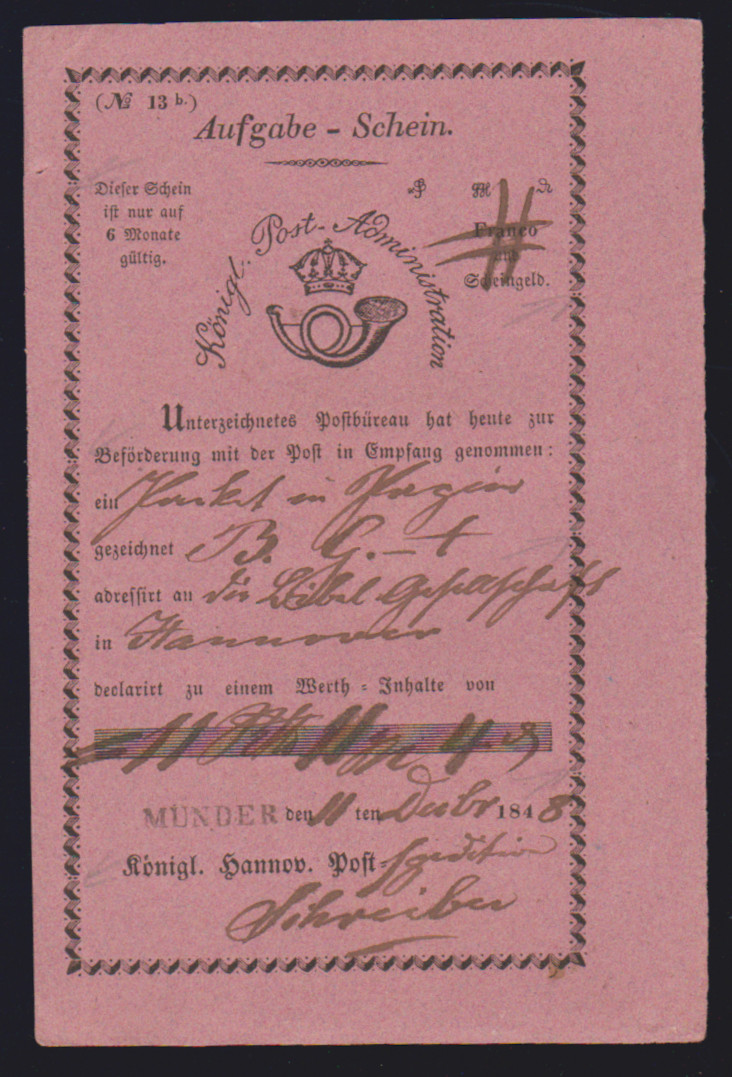 (№ 13 b.)
Aufgabe - Schein.
Dieser Schein
ist nur auf
6 Monate
gültig.
Franco
und
Scheingeld.
Königl. Post-Administration
Unterzeichnetes Postbüreau hat heute zur
Beförderung mit der Post in Empfang genommen:
ein Packet in Papier
gezeichnet B. G.
adressirt an die Bibel Gesellschaft
in Hannover
declarirt zu einem Werth-Inhalte von
11 11 4
MÜNDER den 11 ten Decbr 1848
Königl. Hannov. Post-Spedition
Schreiber